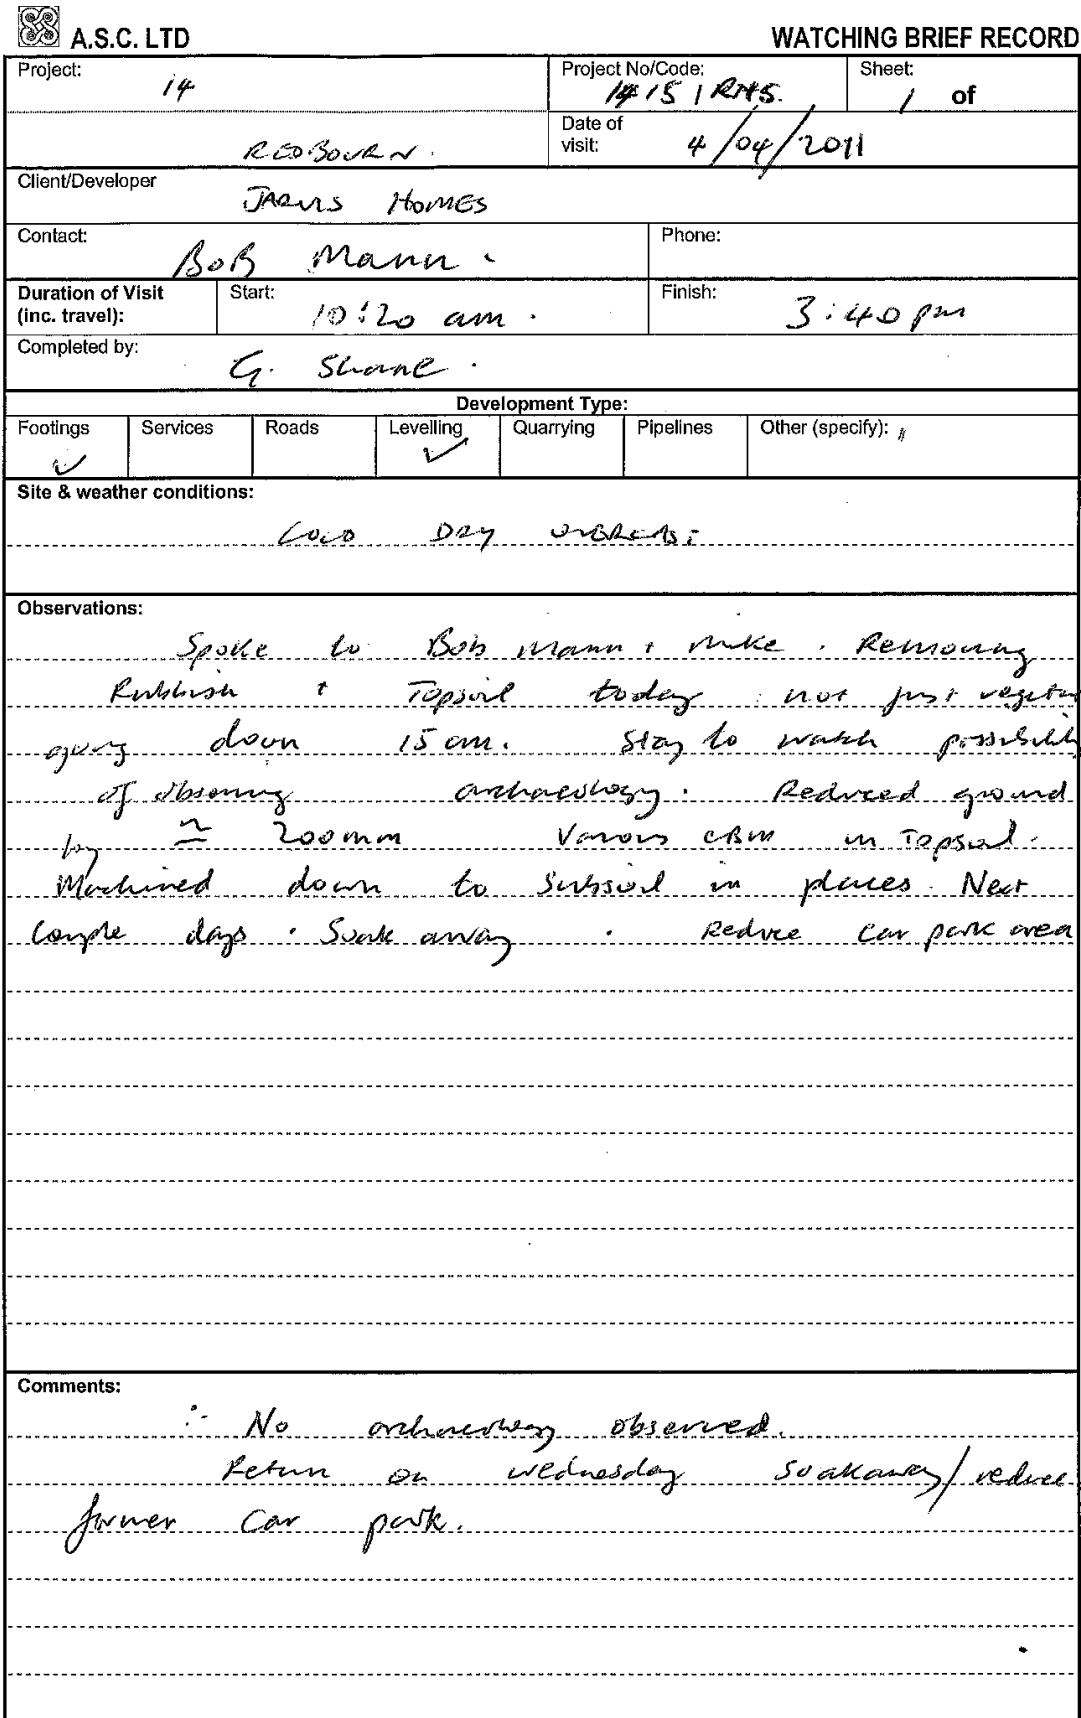 A.S.C. LTD
WATCHING BRIEF RECORD
Project: 14
Project No/Code: 1415 / RHS.
Sheet: 1 of
REDBOURN.
Date of visit: 4/04/2011
Client/Developer JARVIS HOMES
Contact: BOB Mann.
Phone:
Duration of Visit (inc. travel):
Start: 10:20 am.
Finish: 3:40 pm
Completed by: G.
Development Type:
Footings ✓ Services Roads Levelling ✓ Quarrying Pipelines Other (specify):
Site & weather conditions:
COLD DRY
Observations:
Spoke to Bob Mann + Mike. Removing
Rubbish + Topsoil today not just
going down 15 cm. Stay to watch
of observing archaeology. Reduced ground
by ≃ 200mm Various CBM in Topsoil.
Machined down to Subsoil in places. Next
Couple days. Soak away. Reduce Car park area
Comments:
∴ No archaeology observed.
Return on wednesday soakaway/reduce
former Car park.